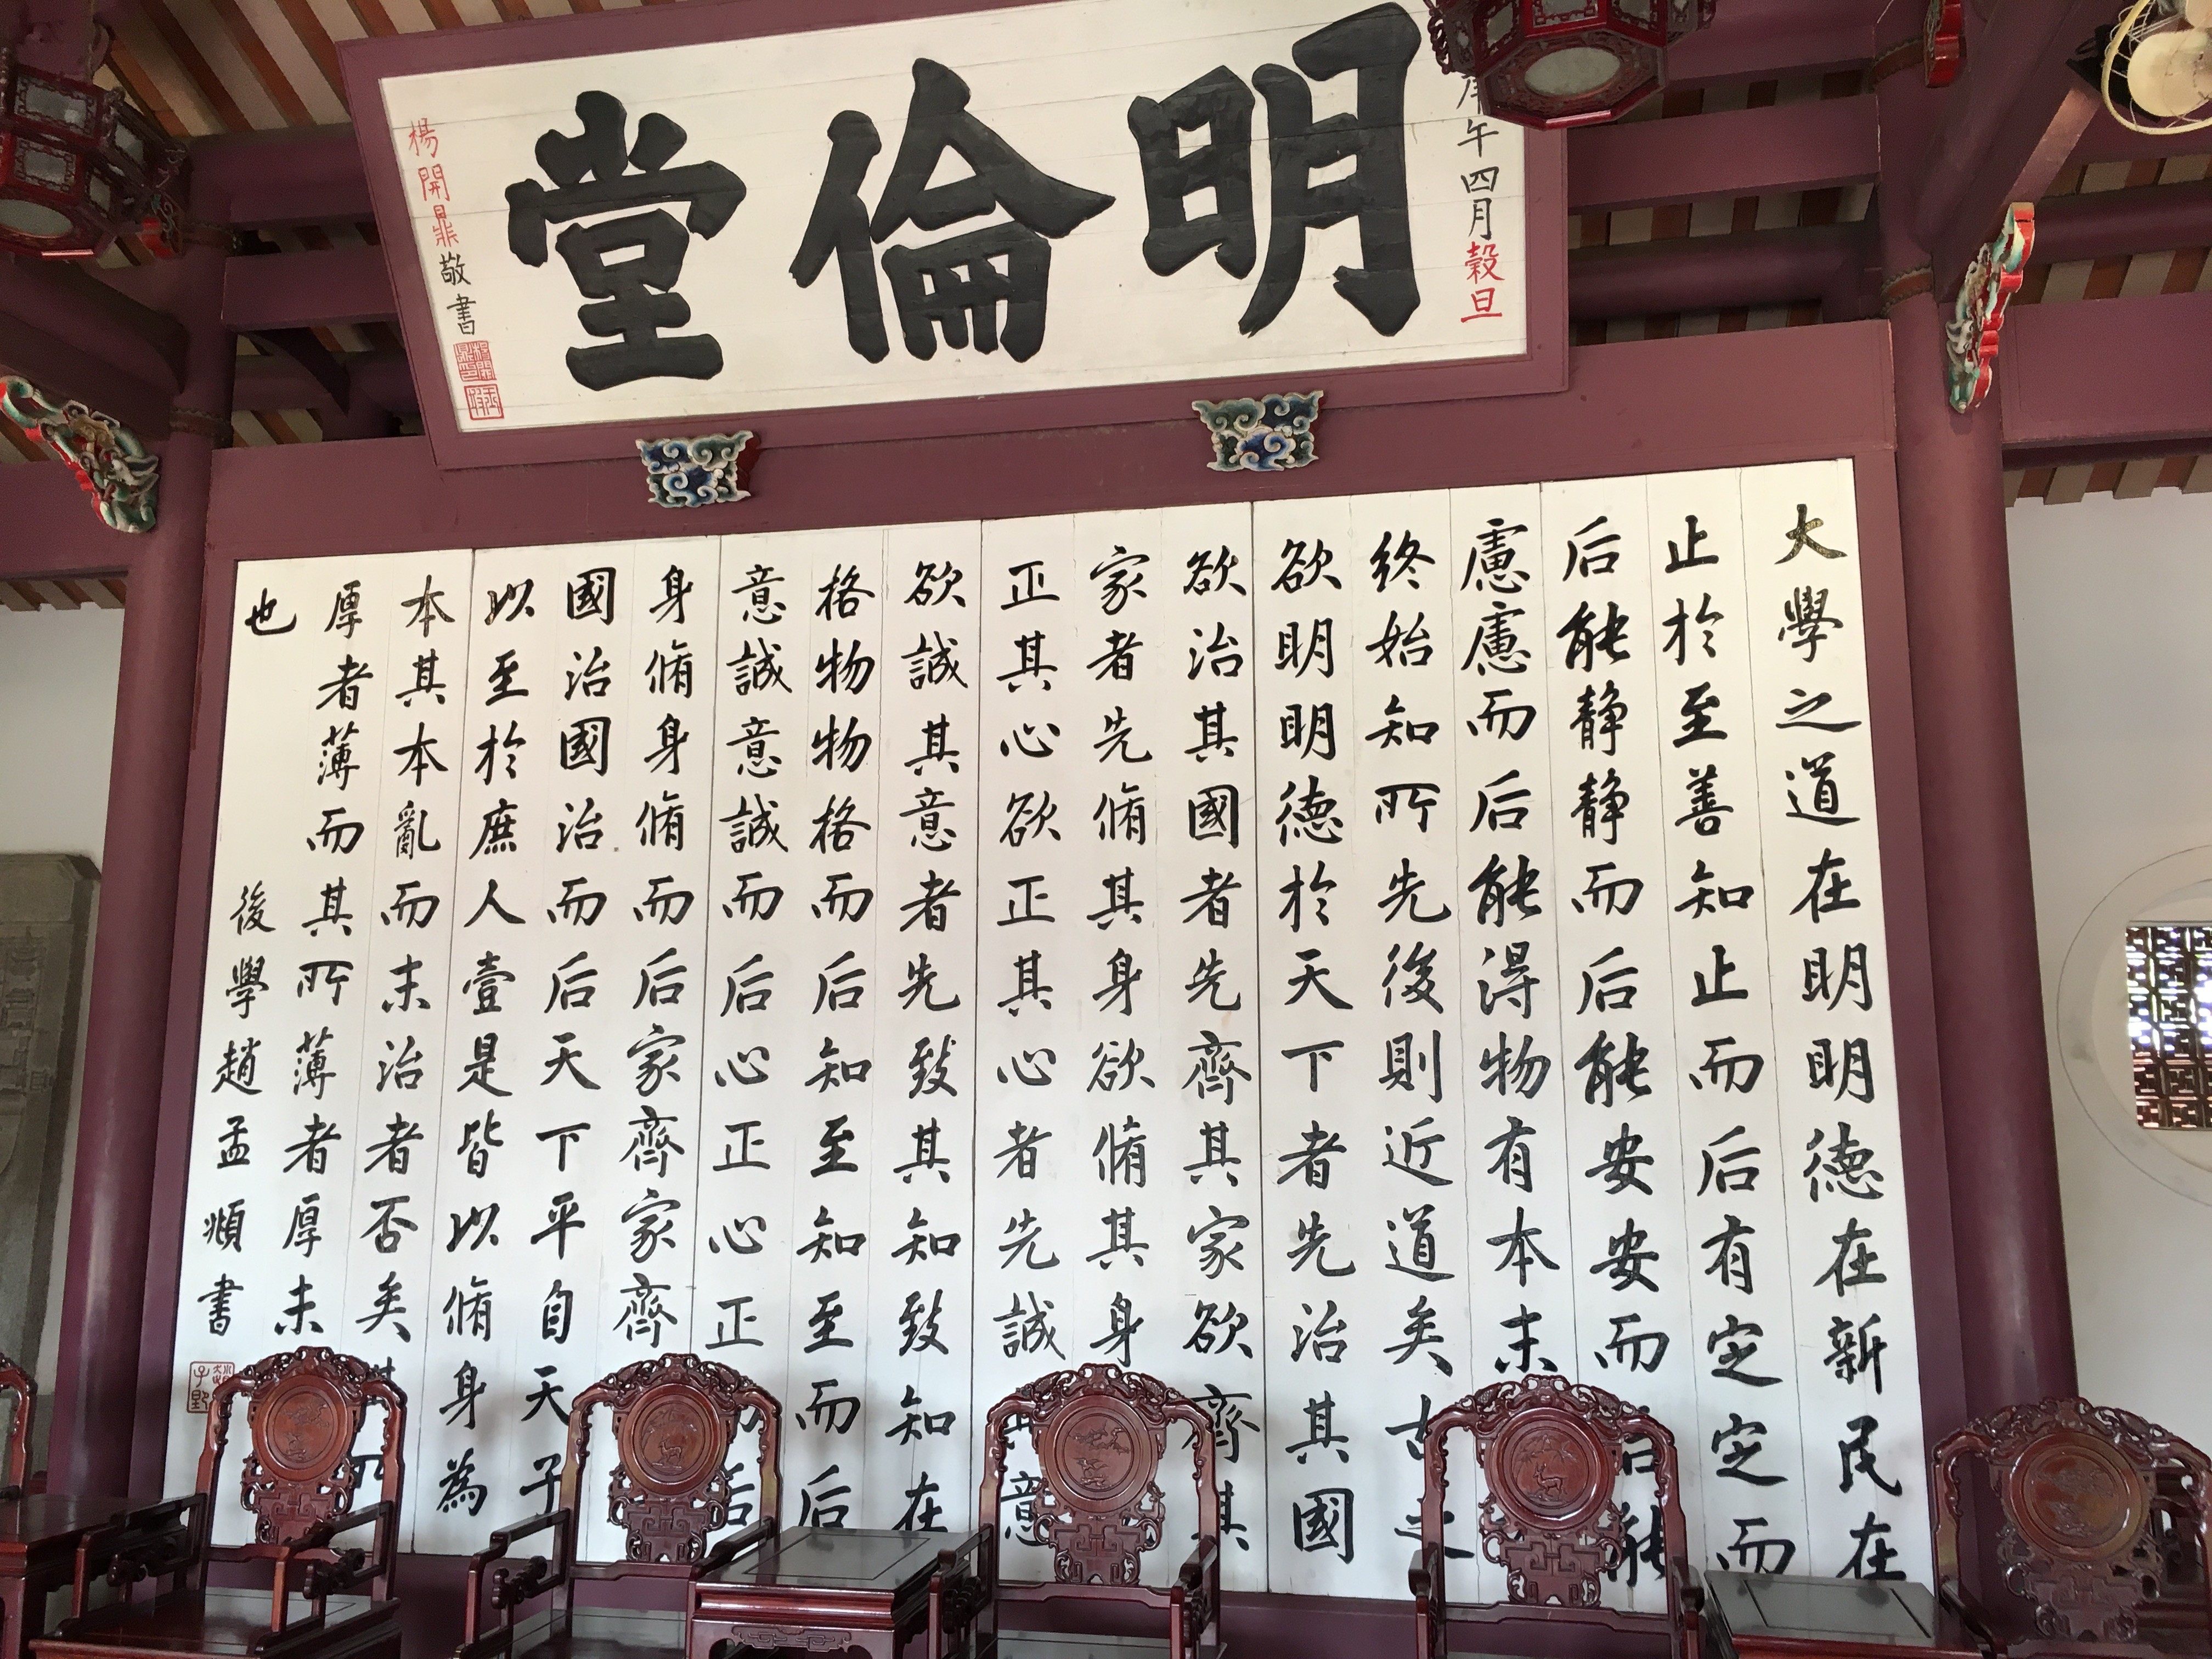 庚午四月穀旦
明倫堂
楊開鼎敬書
大學之道在明明德在新民在
止於至善知止而后有定定而
后能静静而后能安安而后能
慮慮而后能得物有本末
終始知所先後則近道矣古之
欲明明德於天下者先治其國
欲治其國者先齊其家欲齊其
家者先脩其身欲脩其身
正其心欲正其心者先誠其意
欲誠其意者先致其知致知在
格物物格而后知至知至而后
意誠意誠而后心正心正而后
身脩身脩而后家齊家齊
國治國治而后天下平自天子
以至於庶人壹是皆以脩身為
本其本亂而末治者否矣其所
厚者薄而其所薄者厚未
也 後學趙孟頫書